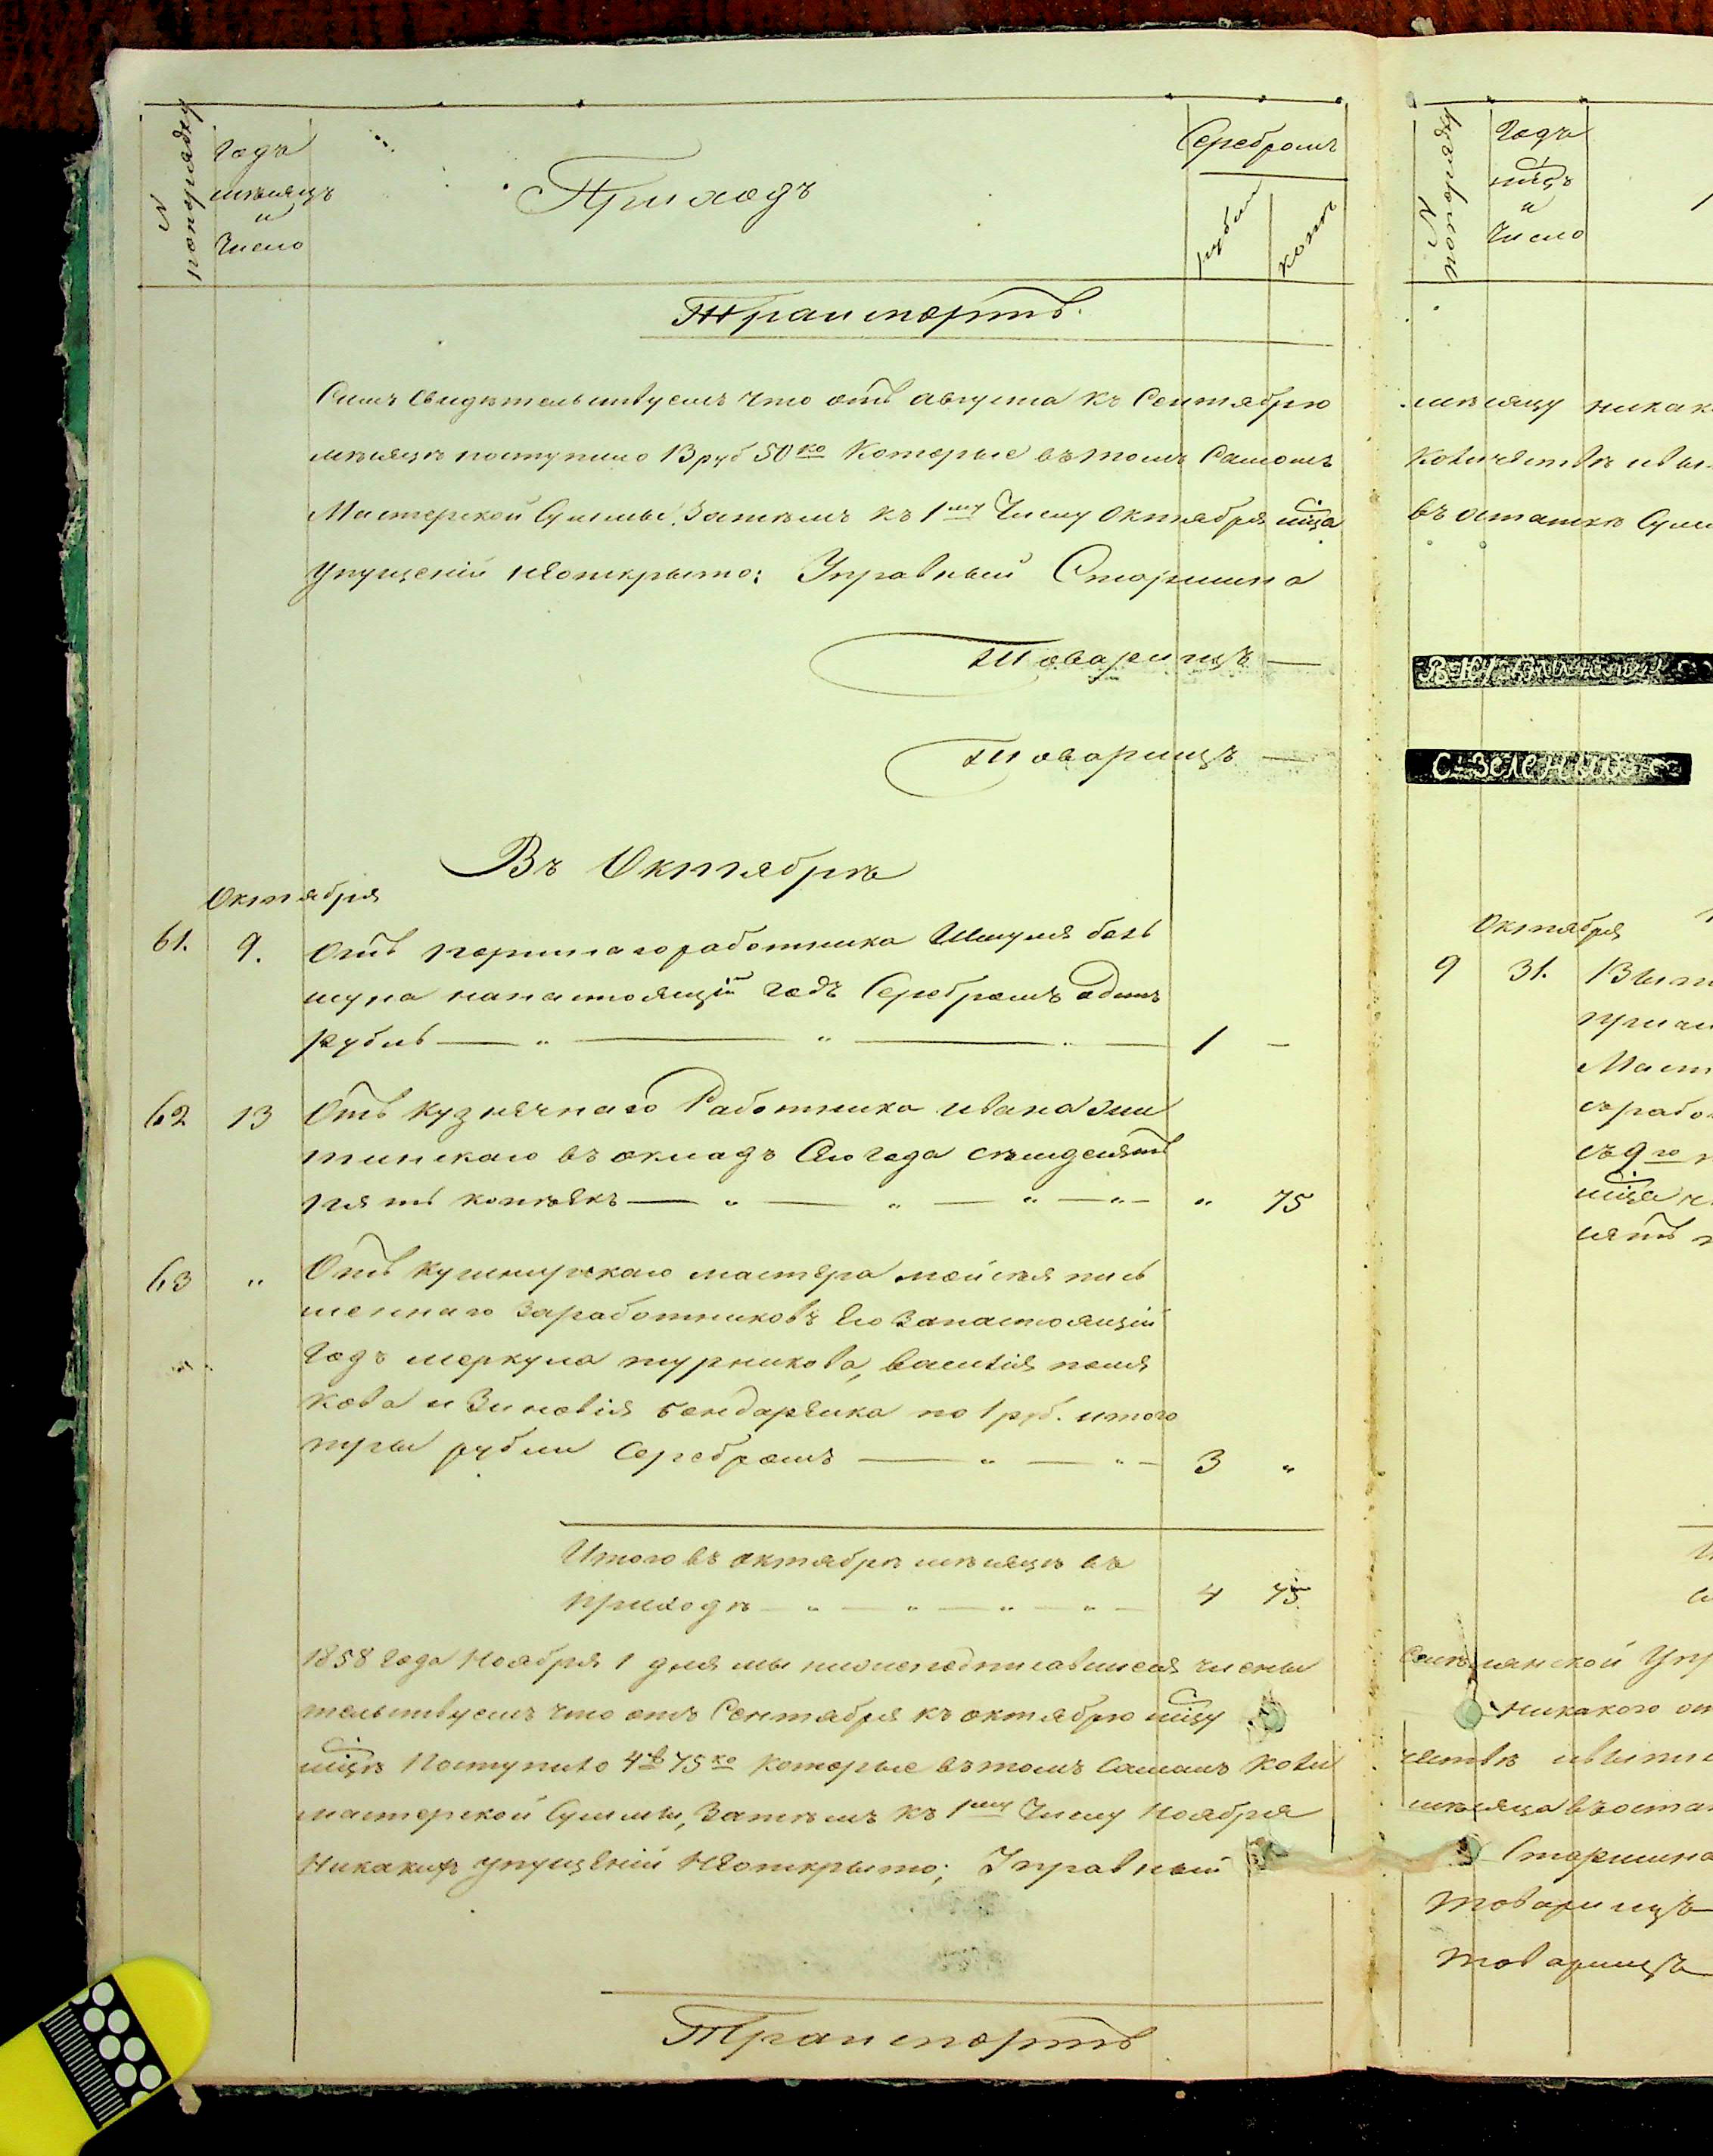 № попорядку
Годъ
мѣсяцъ
и
Число
Приходъ
Серебромъ
рубли
копѣ
Транспортъ.
Симъ Свидѣтельствуемъ что отъ августа къ Сентябрю
мѣсяцѣ поступило 13 руб 50 ко Которые въ томъ Самомъ
Мастерской Суммы. Затѣмъ къ 1му Числу Октября мца
упущеній неоткрыто: Управный Старшина
Товарищъ —
Товарищъ —
Въ Октябрѣ
Октября
61. 9. Отъ работника Шмуля безъ
шума нанастоящій годъ Серебромъ адинъ
рубль — " — " — " — 1 —
62 13 Отъ Кузнечнаго Работника ивана
тинскаго въ окладъ Сего года семдесятъ
пять копѣекъ — " — " — " — " — " 75
63 " Отъ кушнирскаго мастера мойсея пись
меннаго Заработниковъ Его Занастоящій
Годъ меркула турникова, васиlія поля
кова и Зиновія бендаренка по 1 руб. итого
три рубли Серебромъ — " — " — 3 "
Итого въ октябрѣ мѣсяцѣ въ
приходѣ — " — " — " — " — 4 75
1858 года Ноября 1 дня мы нижеподписавшееся члены
тельствуемъ что отъ Сентября къ октябрю мцу
мцѣ Поступило 4 р 75 ко Которые въ томъ Самомъ Коли
мастерской Суммы, Затѣмъ къ 1му Числу Ноября
Никакихъ упущеній Неоткрыто; Управный
Транспортъ
№ попорядку
Годъ
мцъ
и
Число
мѣсяцу никак
Количествѣ
въ остаткѣ Сумм
С: Зеленый
Октября
9 31.
Маст
съ 9го
мца
Никакого
чествѣ
мѣсяца въ оста
Старшина
товарищъ
товарищъ